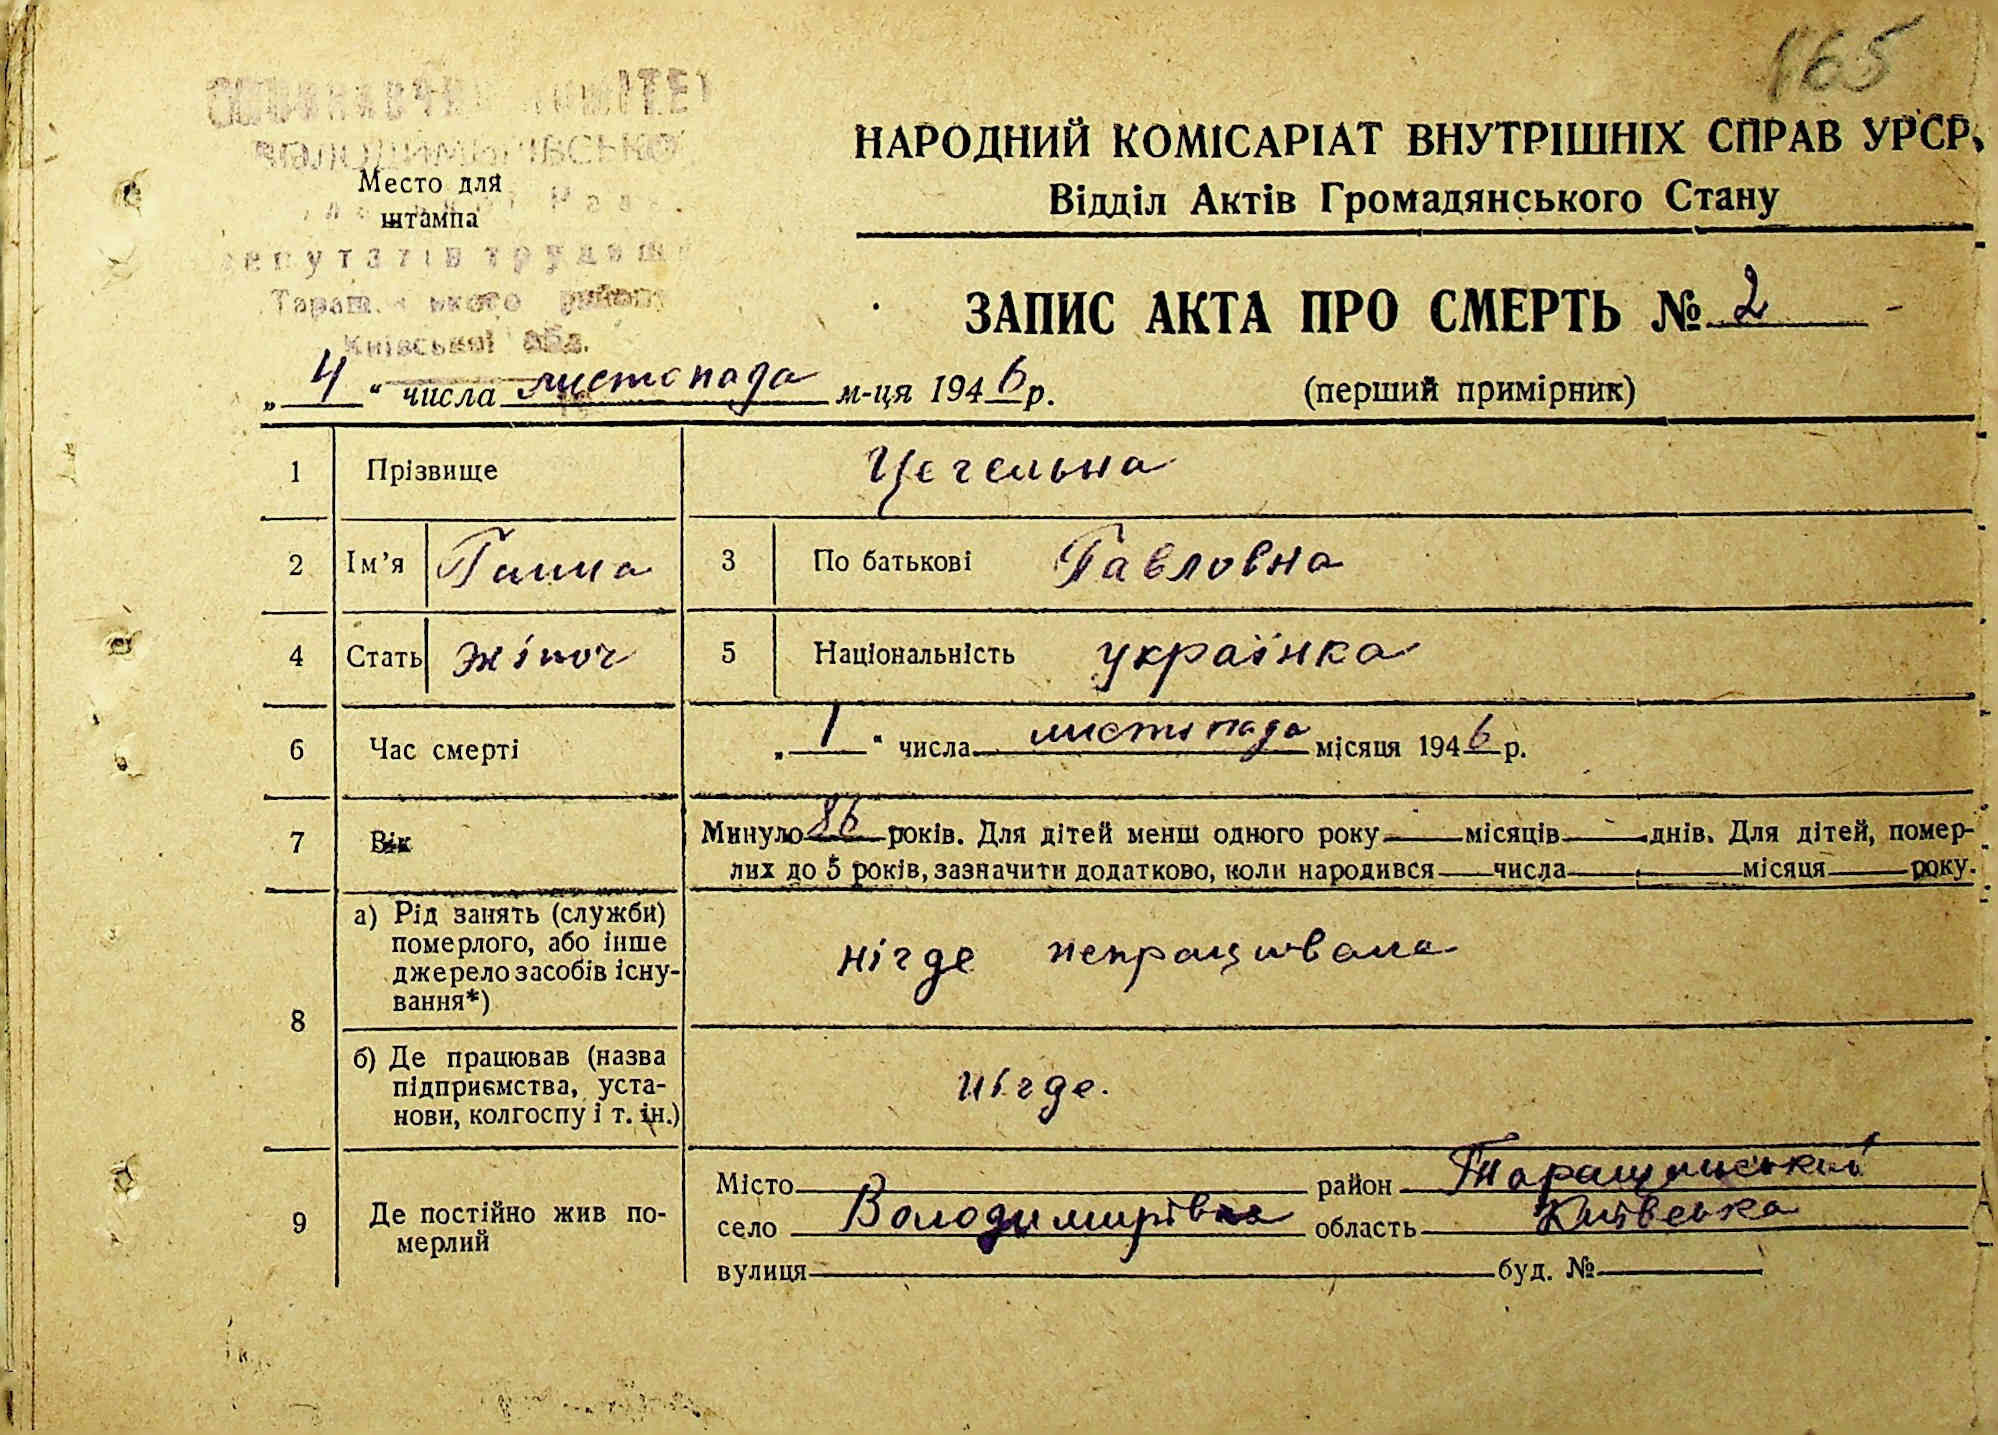 165
НАРОДНИЙ КОМІСАРІАТ ВНУТРІШНІХ СПРАВ УРСР
Відділ Актів Громадянського Стану
Место для
штампа
депутатів трудящ
Київської обл.
ЗАПИС АКТА ПРО СМЕРТЬ № 2
„4“ числа листопада м-ця 1946 р.
(перший примірник)
1 Прізвище Цегельна
2 Ім’я Ганна 3 По батькові Павловна
4 Стать жіноч 5 Національність українка
6 Час смерті „1“ числа листопада місяця 1946 р.
7 Вік Минуло 86 років. Для дітей менш одного року місяців днів. Для дітей, помер-
лих до 5 років, зазначити додатково, коли народився числа місяця року.
8 а) Рід занять (служби)
померлого, або інше
джерело засобів існу-
вання*)
нігде непрацювала
б) Де працював (назва
підприємства, уста-
нови, колгоспу і т. ін.)
нігде.
9 Де постійно жив по-
мерлий
Місто район Таращанський
село Володимирівка область Київська
вулиця буд. №